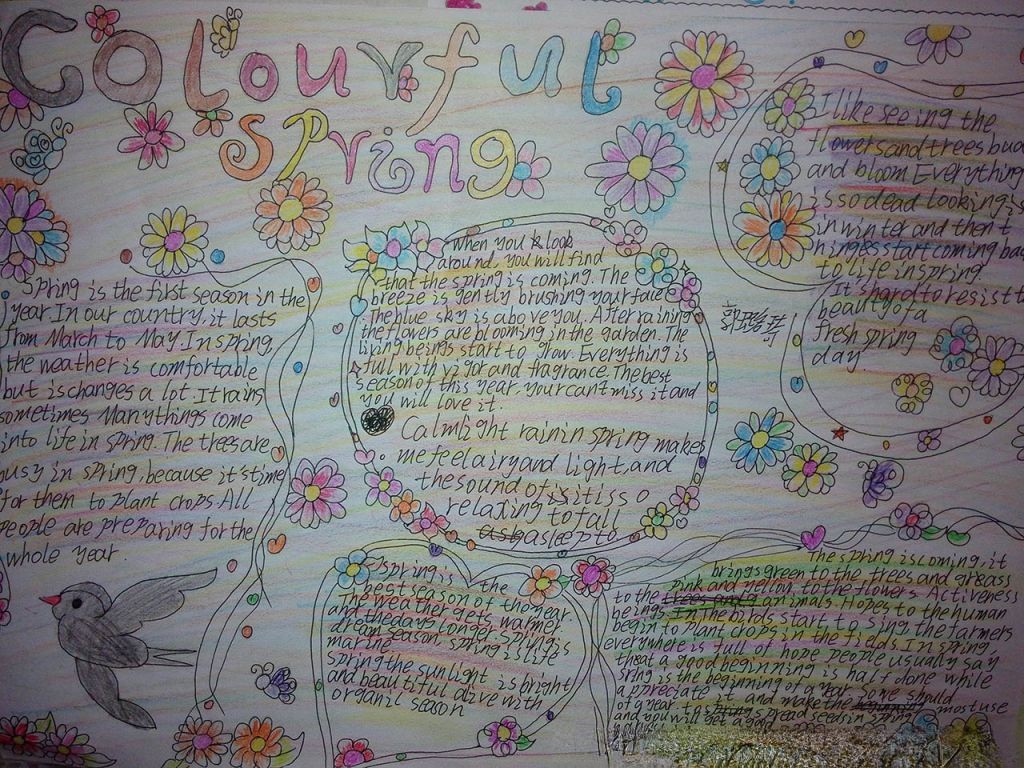 Colourful
Spring
Spring is the first season in the
year. In our country, it lasts
from March to May. In spring,
the weather is comfortable
but ischanges a lot. It rains
sometimes. Many things come
into life in spring. The trees are
busy in spring, because it's time
for them to plant crops. All
people are preparing for the
whole year.
When you look
around, you will find
that the spring is coming. The
breeze is gently brushing your face
The blue sky is above you. After raining
the flowers are blooming in the garden. The
living beings start to grow. Everything is
full with vigor and fragrance. The best
season of this year. your can't miss it and
you will love it.
Calmlight rainin spring makes
me feel airy and light, and
the sound of is itiss o
relaxing to fall
asleep to
I like seeing the
flowers and trees bud
and bloom Everything
is so dead looking is
in winter and then t
hinges start coming ba
to life in spring
It's hard to resist t
beauty of a
fresh spring
day.
Spring is the
best season of the year
The weather gets warmer
and the days longer spring is
dream season spring is life
marine
spring the sunlight is bright
and beautiful alive with
organic season
The spring is coming, it
brings green to the trees and gr8ass
to the pink and mellow, to the flowers Activeness
beings animals. Hopes to the human
In the birds start to sing, the farmers
begin to plant crops in the fields. In spring,
everywhere is full of hope people usually say
that a good beginning is half done while
sring is the beginning of a year so we should
appreciate it and make the most use
of a year to spread seeds in spring
and you will get a good